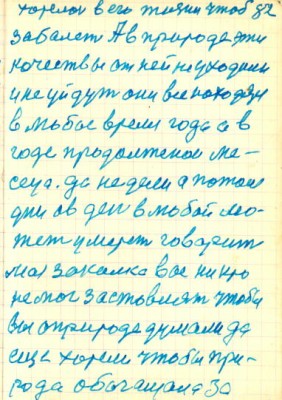 хотелось в его жизни чтоб
забалет А в природе эти
качествы от ней не уходили
и не уйдут они все находян
в любое время года а в
годе продолжение ме-
сеца. да недели а потом
дни ов ден в любой мо-
жет умерет говорит
моя закалка вас никто
не мог заставлят чтобы
вы о природе думали да
еще хотели чтобы при-
рода обогащала за